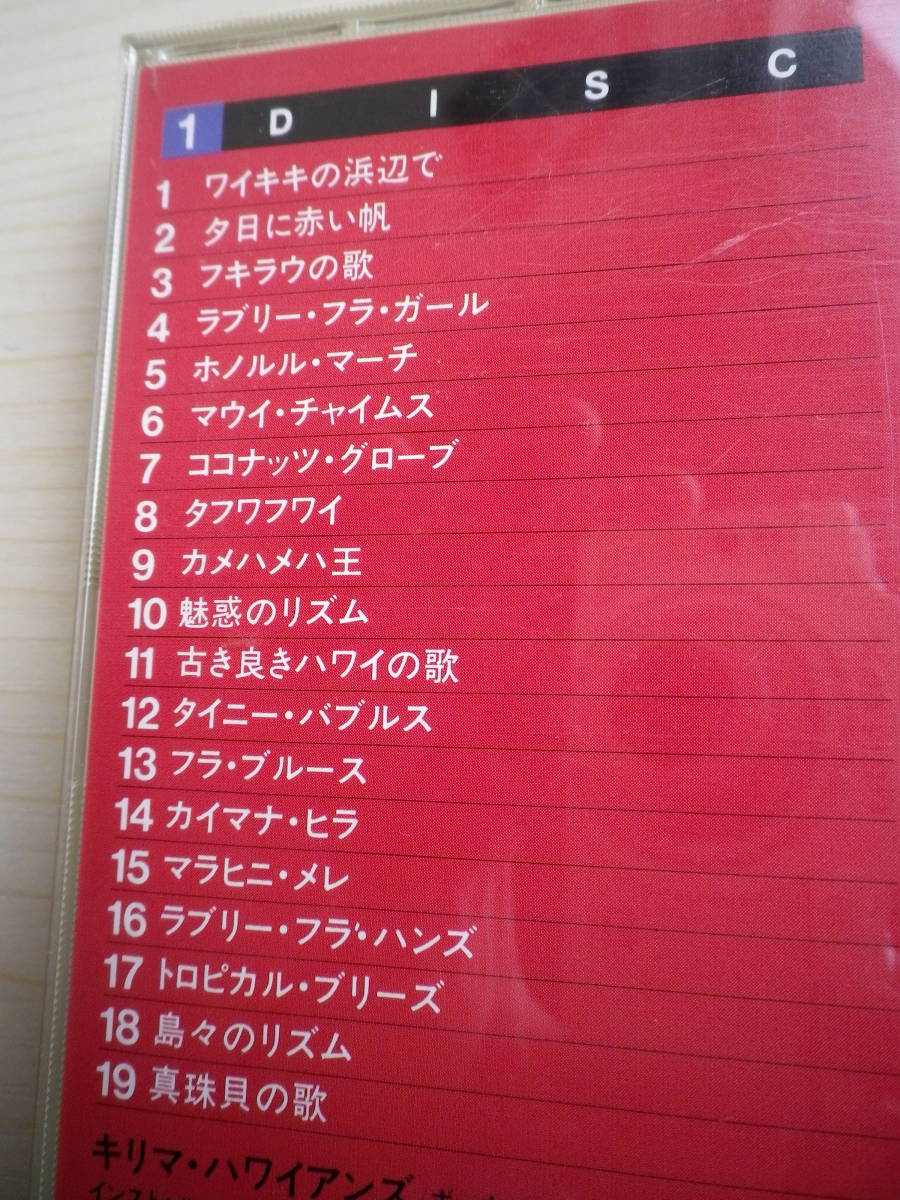 1 DISC
1 ワイキキの浜辺で
2 夕日に赤い帆
3 フキラウの歌
4 ラブリー・フラ・ガール
5 ホノルル・マーチ
6 マウイ・チャイムス
7 ココナッツ・グローブ
8 タフワフワイ
9 カメハメハ王
10 魅惑のリズム
11 古き良きハワイの歌
12 タイニー・バブルス
13 フラ・ブルース
14 カイマナ・ヒラ
15 マラヒニ・メレ
16 ラブリー・フラ・ハンズ
17 トロピカル・ブリーズ
18 島々のリズム
19 真珠貝の歌
キリマ・ハワイアンズ